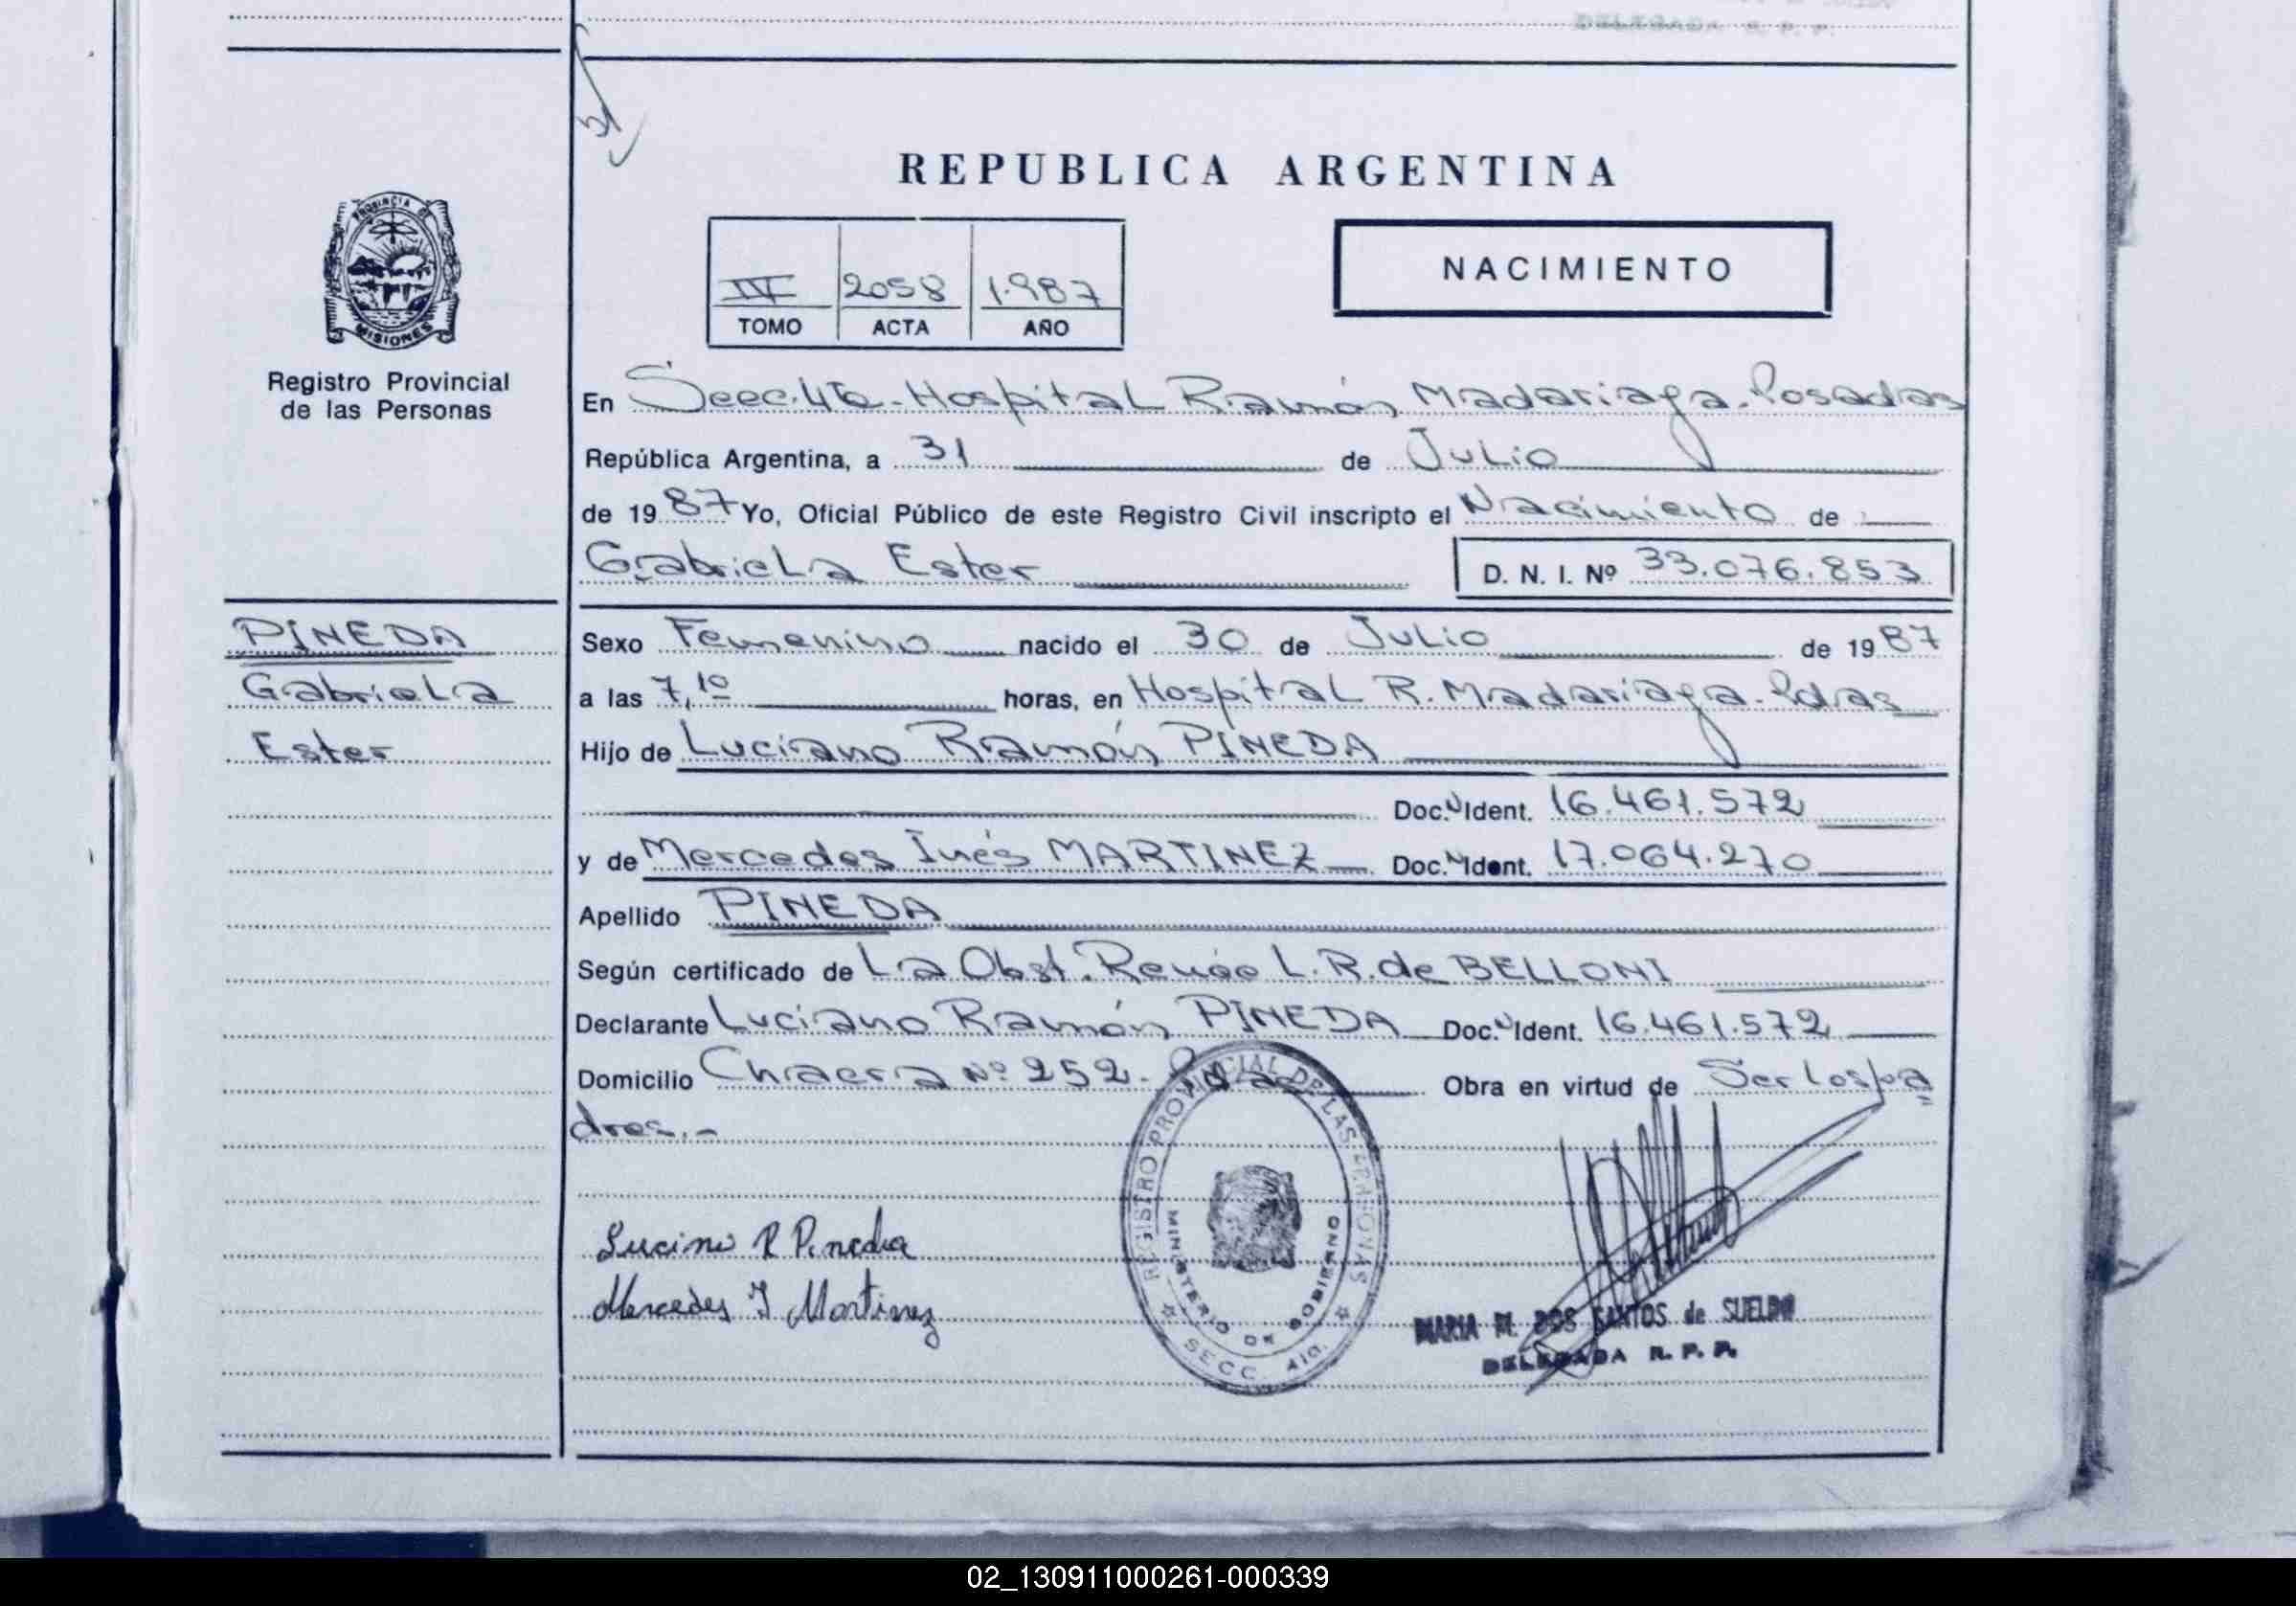 DELEGADA R. P. P.
PROVINCIA DE
MISIONES
Registro Provincial
de las Personas
REPUBLICA ARGENTINA
IV 2058 1.987
TOMO ACTA AÑO
NACIMIENTO
En Secc. 4ta - Hospital Ramón Madariaga - Posadas
República Argentina, a 31 de Julio
de 1987 Yo, Oficial Público de este Registro Civil inscripto el Nacimiento de
Gabriela Ester D. N. I. Nº 33.076.853
PINEDA
Gabriela
Ester
Sexo Femenino nacido el 30 de Julio de 1987
a las 7,10 horas, en Hospital R. Madariaga - Pdas
Hijo de Luciano Ramón PINEDA
Doc. Ident. 16.461.572
y de Mercedes Inés MARTINEZ Doc. Ident. 17.064.270
Apellido PINEDA
Según certificado de La Obst. Renée L. R. de BELLONI
Declarante Luciano Ramón PINEDA Doc. Ident. 16.461.572
Domicilio Chacra Nº 252 - Pdas Obra en virtud de Ser los pa=
dres.-
REGISTRO PROVINCIAL DE LAS PERSONAS
MINISTERIO DE GOBIERNO
SECC. 4ta.
Lucino R Pineda
Mercedes I Martinez
MARIA M. DOS SANTOS de SUELDO
DELEGADA R. P. P.
02_130911000261-000339